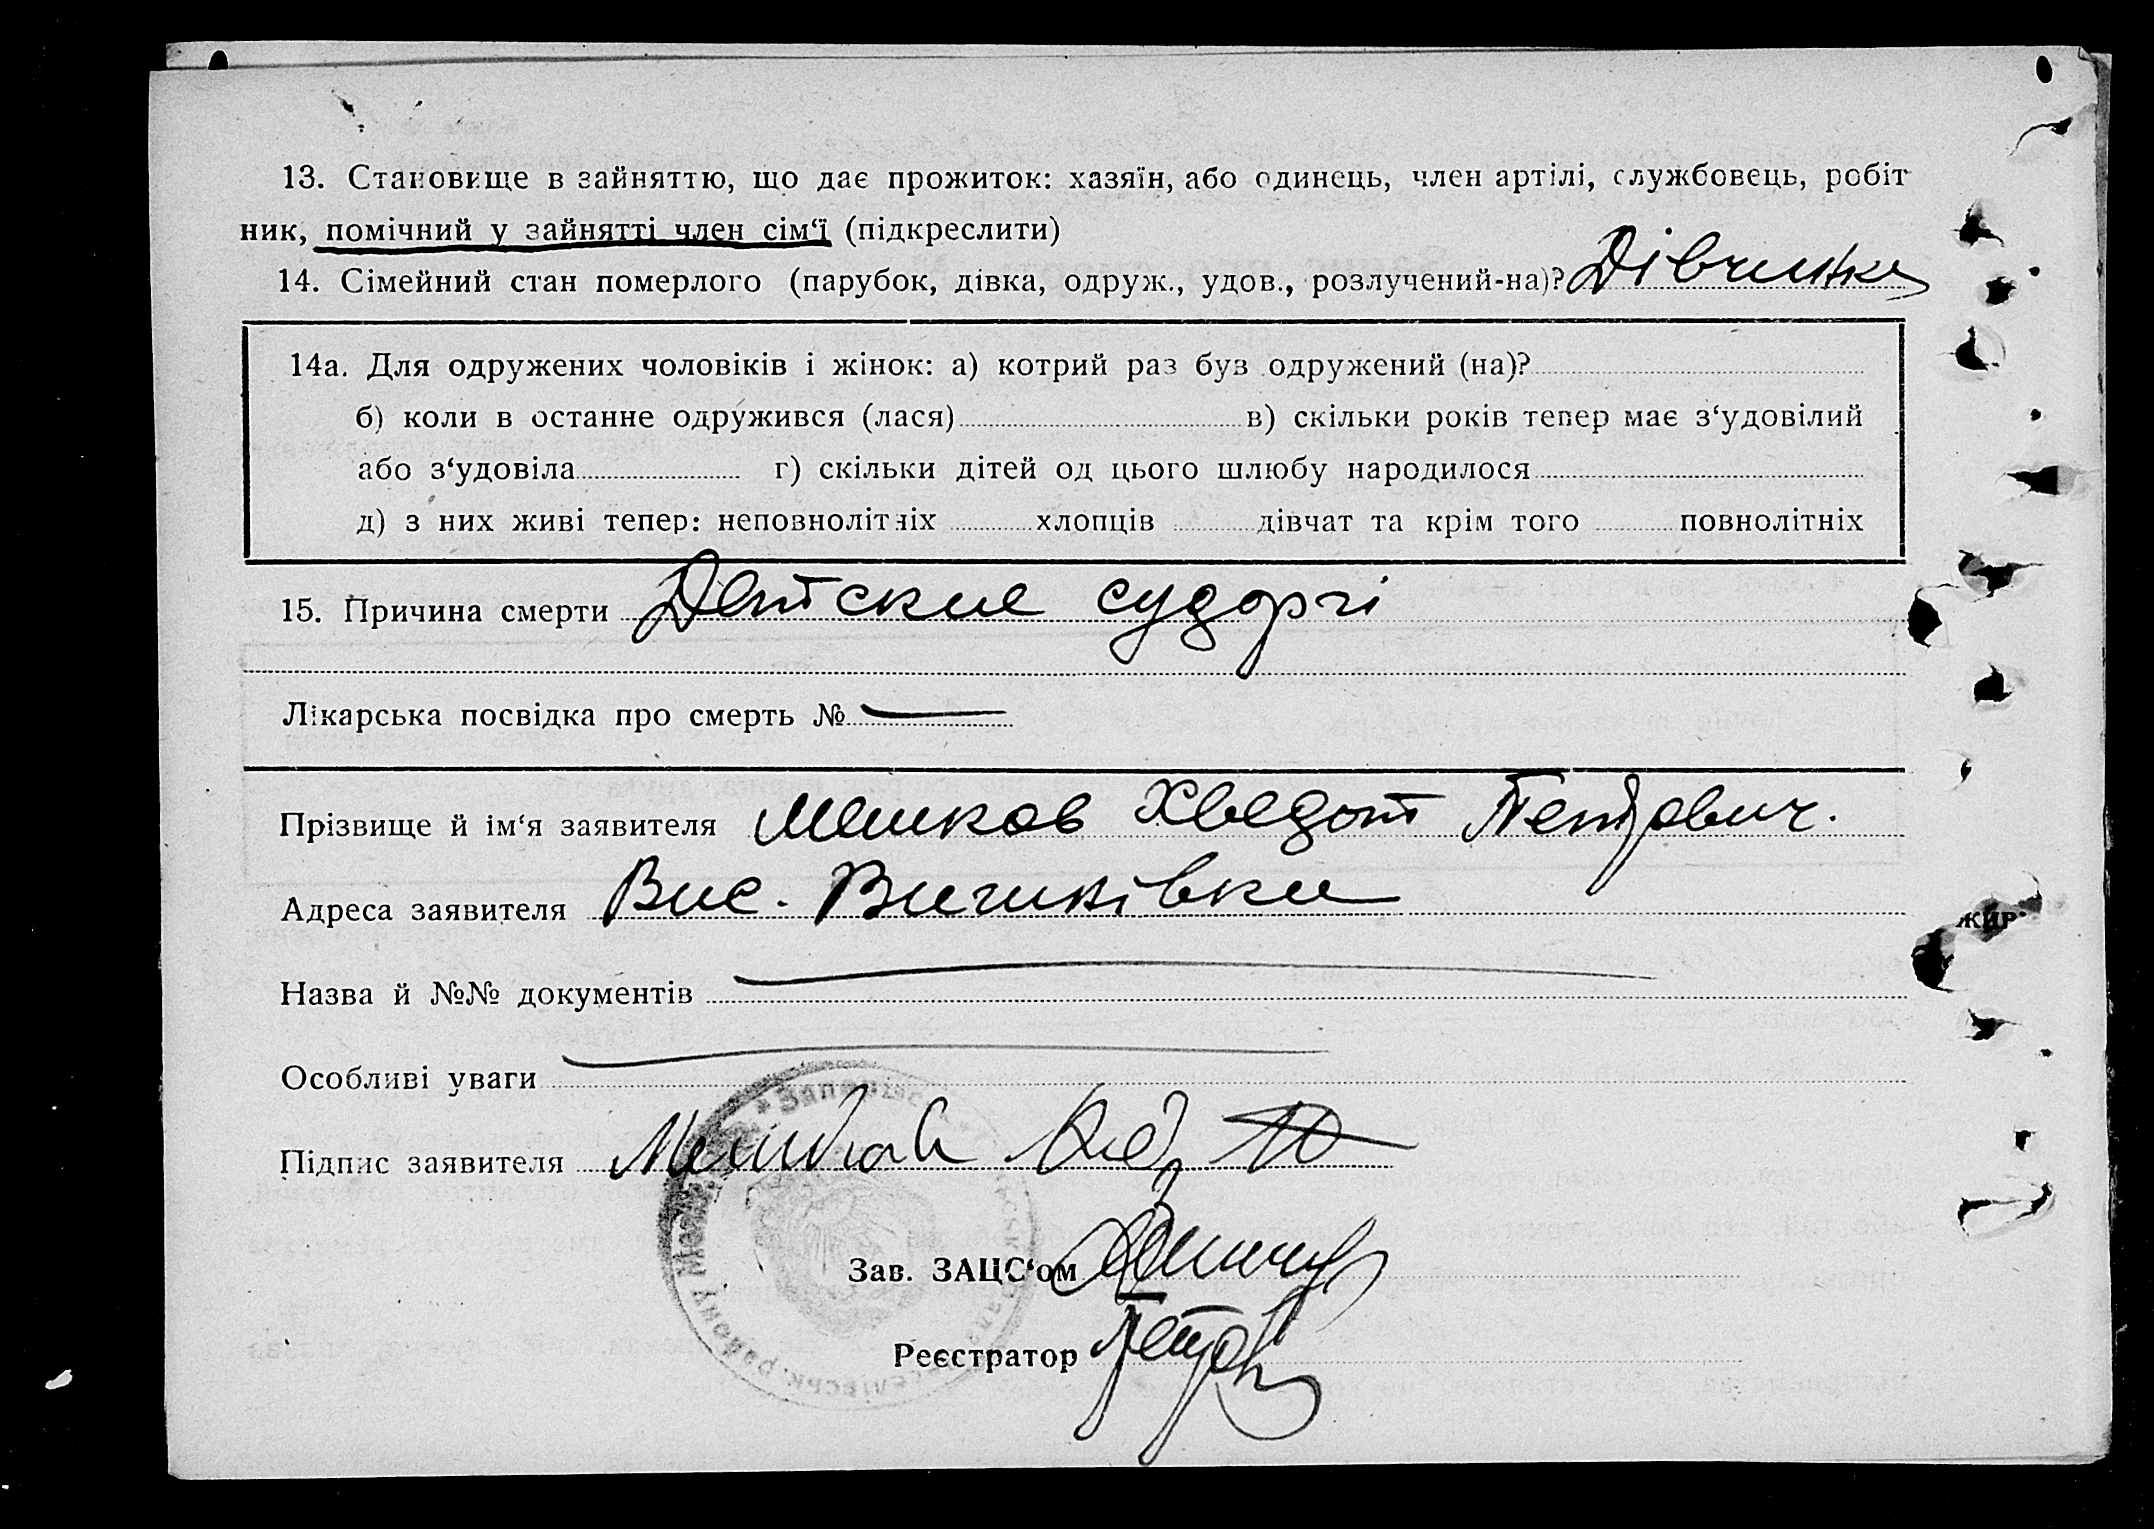 13. Становище в зайняттю, що дає прожиток: хазяїн, або одинець, член артілі, службовець, робіт
ник, помічний у зайнятті член сім‘ї (підкреслити)
14. Сімейний стан померлого (парубок, дівка, одруж., удов., розлучений-на)? Дівчинка
14а. Для одружених чоловіків і жінок: а) котрий раз був одружений (на)?
б) коли в останне одружився (лася) в) скільки років тепер має з‘удовілий
або з‘удовіла г) скільки дітей од цього шлюбу народилося
д) з них живі тепер: неповнолітніх хлопців дівчат та крім того повнолітніх
15. Причина смерти Детские судоргі
Лікарська посвідка про смерть №
Прізвище й ім‘я заявителя Мешков Хведот Петрович.
Адреса заявителя Вис. Вишнівки
жир
Назва й №№ документів
Особливі уваги
Підпис заявителя Мешков
Зав. ЗАЦС‘ом
Реєстратор Петров